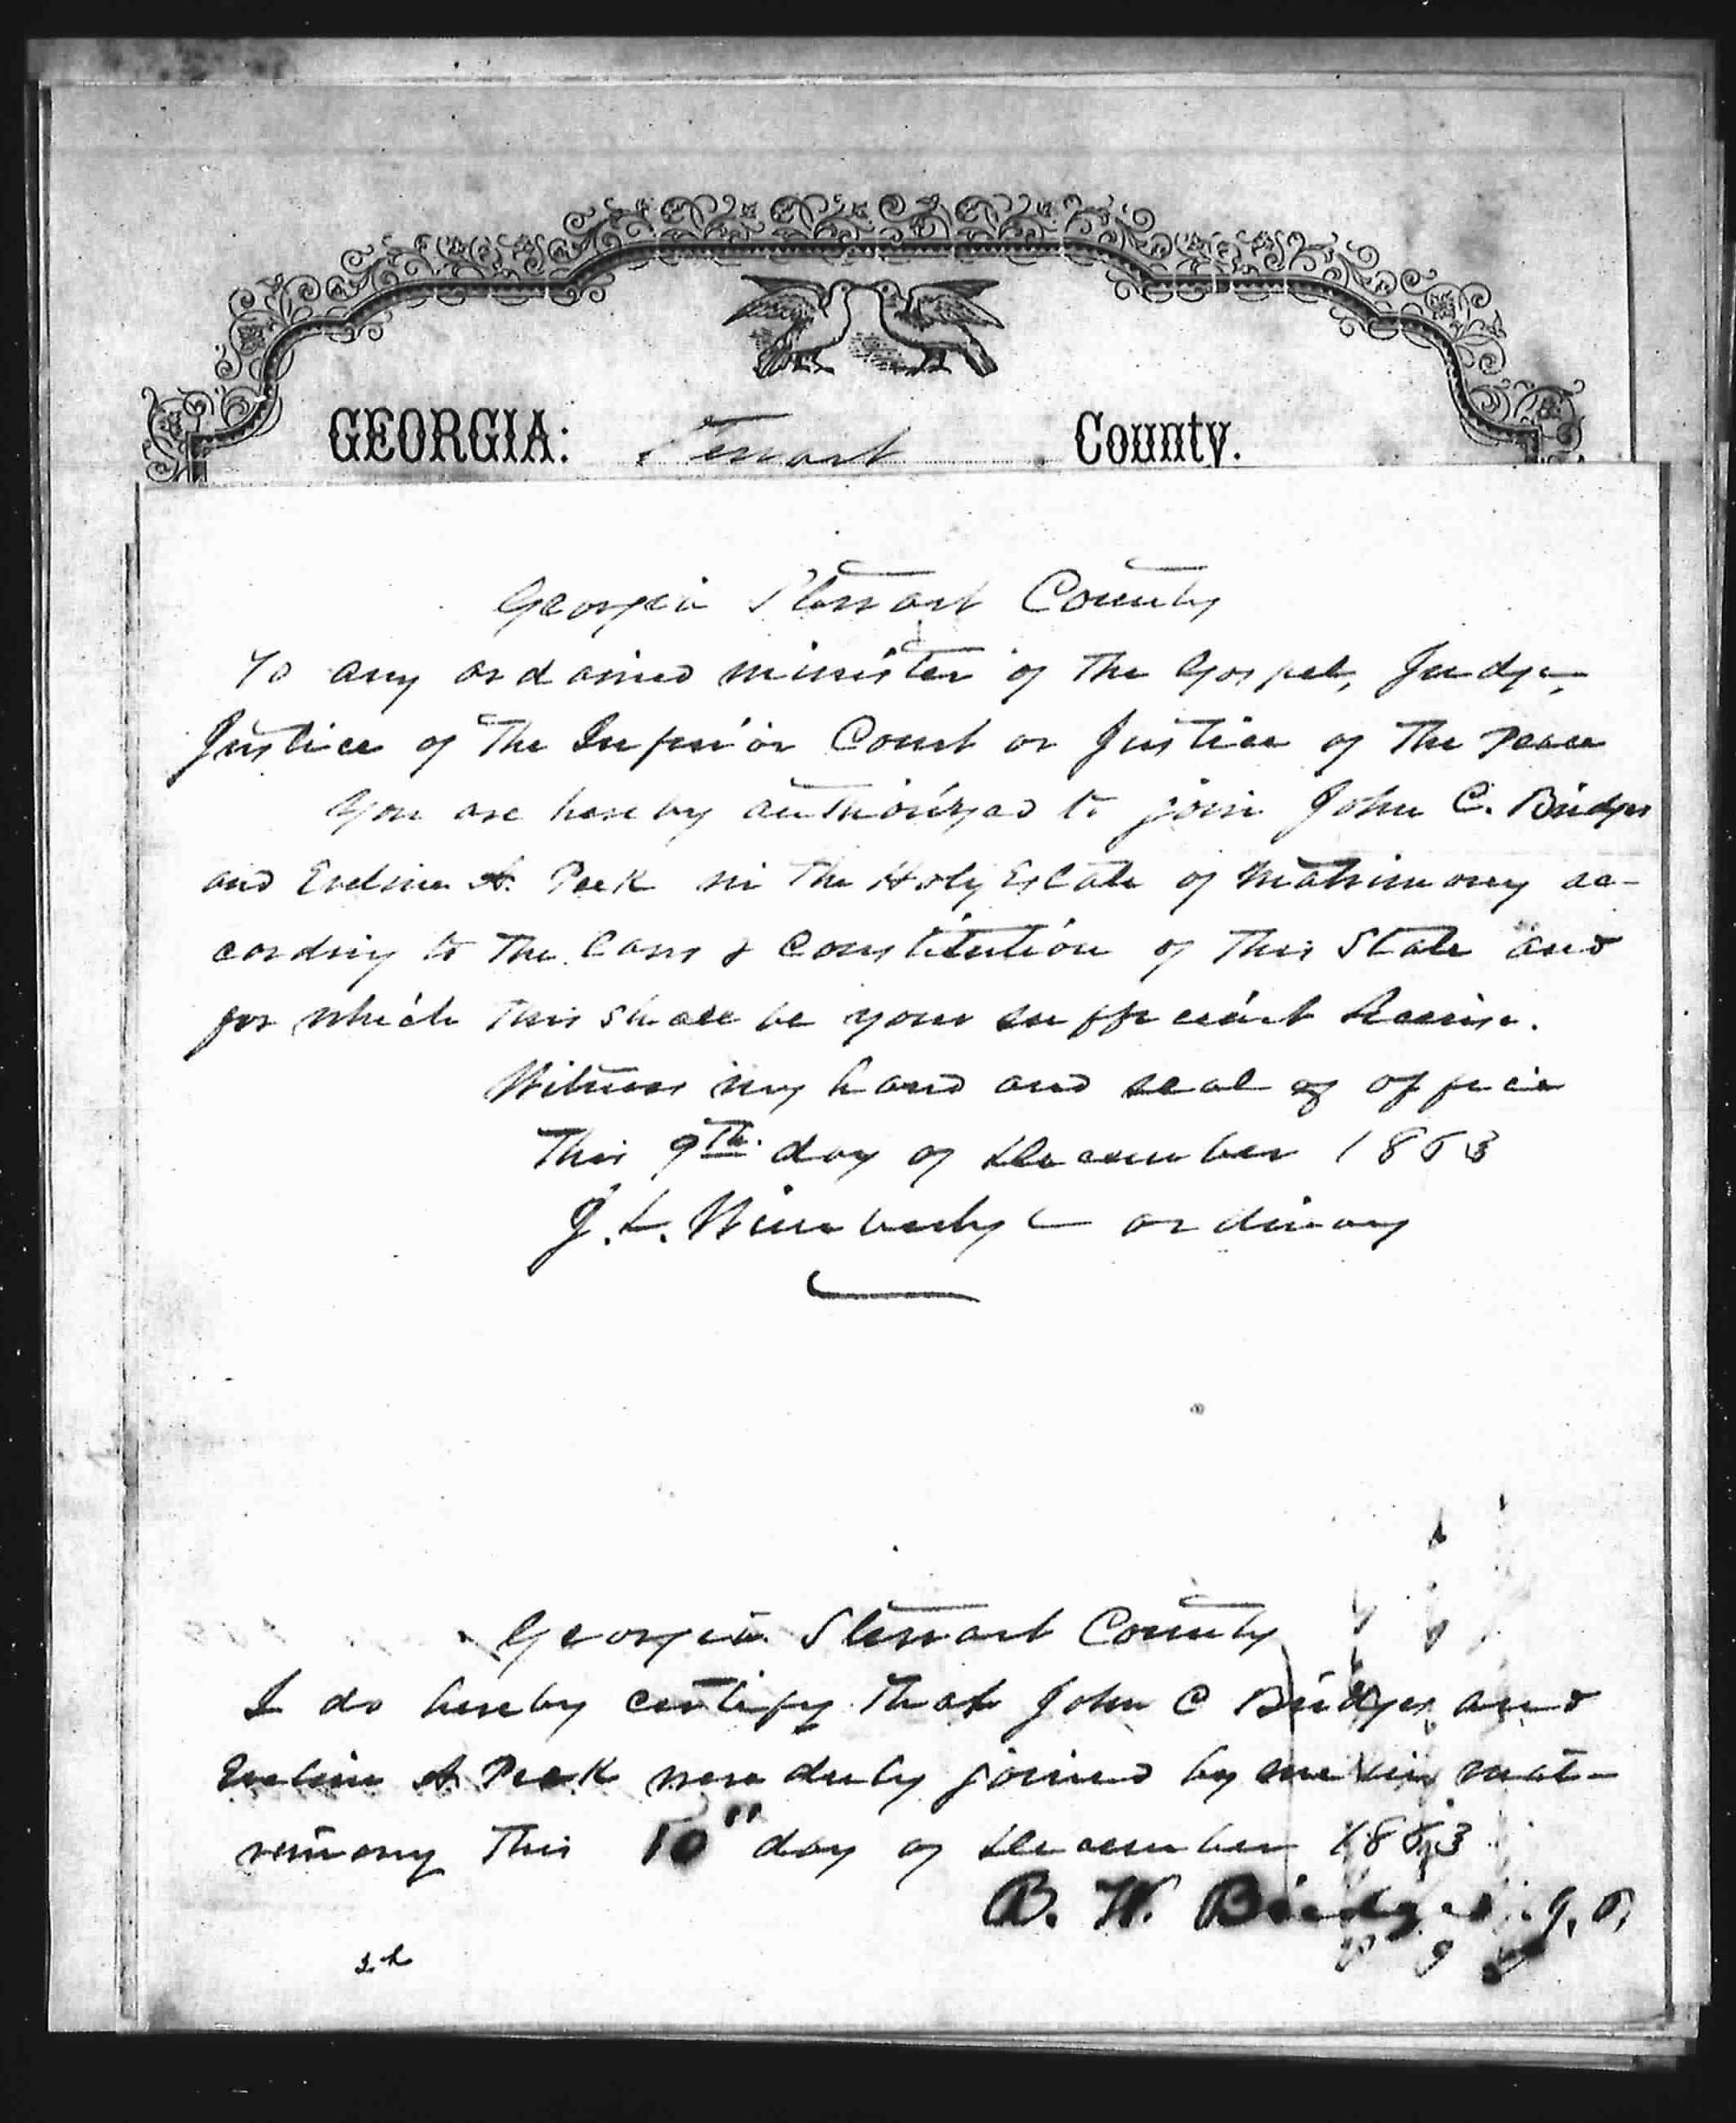 GEORGIA: Stewart County.
Georgia Stewart County
To any ordained minister of the Gospel, Judge,
Justice of the Inferior Court or Justice of the Peace
You are hereby authorized to join John C. Bridges
and Eveline A. Peek in the Holy Estate of Matrimony ac-
cording to the Laws & Constitution of this State and
for which this shall be your sufficient License.
Witness my hand and seal of office
This 9th day of December 1863
J. L. Wimberly - ordinary
Georgia Stewart County
I do hereby certify that John C Bridges and
Eveline A Peek were duly joined by me in mat-
rimony this 10" day of December 1863
B. W. Bridges J. P.